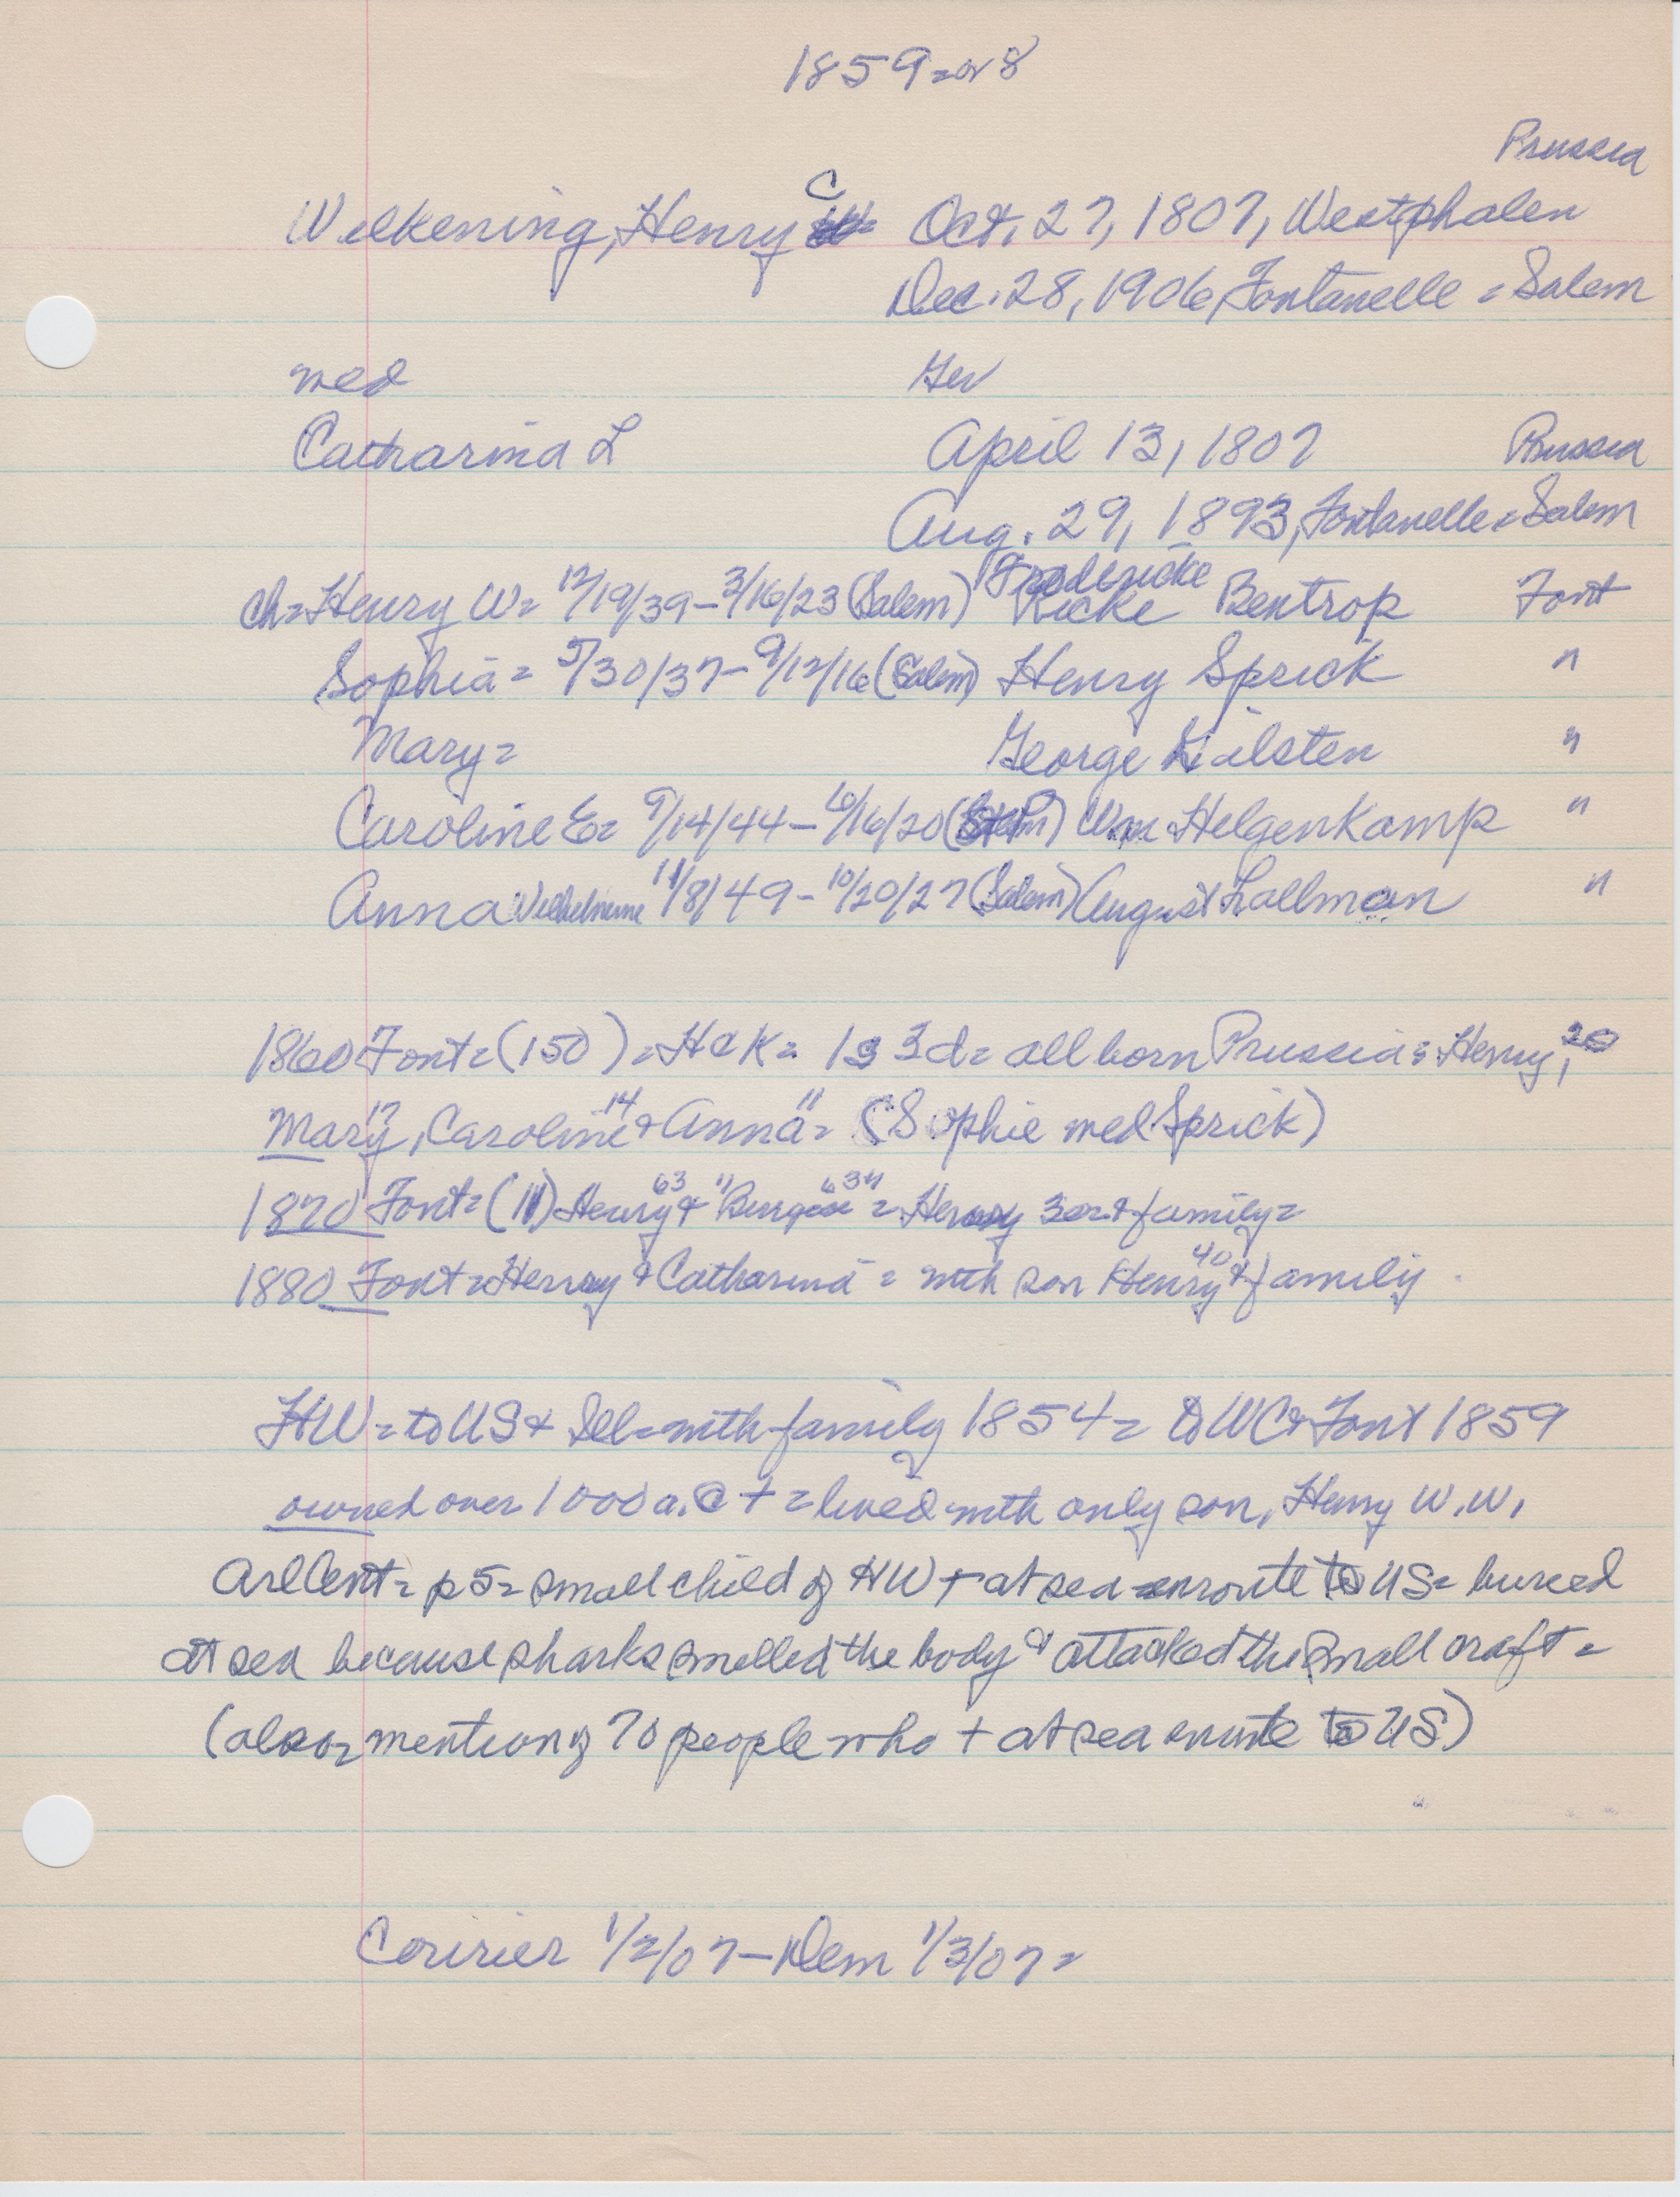 1859 = or 8
Prussia
Wilkening, Henry C Oct. 27, 1807, Westphalen
Dec. 28, 1906, Fontanelle = Salem
med Ger
Catharina L April 13, 1807 Prussia
Aug. 29, 1893, Fontanelle = Salem
Fredericke
ch = Henry W = 12/19/39 - 3/16/23 (Salem) Ricke Bentrop Font
Sophia = 5/30/37 - 9/12/16 (Salem) Henry Sprick "
Mary = George "
Caroline E = 9/14/44 - 6/16/20 Wm Helgenkamp "
Anna Wilhelmine 11/8/49 - 10/20/27 (Salem) August Lallman "
1860 Font = (150) = H & K = 1s 3d = all born Prussia = Henry, 20
Mary 17, Caroline 14 & Anna 11 = (Sophie med Sprick)
1870 Font = (11) Henry 63 & " " 63 = Henry 30 & family =
1880 Font = Henry & Catharina = with son Henry 40 & family.
HW = to US & Ill = with family 1854 = to WC & Font 1859
owned over 1000 a. @ + = lived with only son, Henry W. W.
ArlCent = p5 = small child of HW + at sea enroute to US = buried
at sea because sharks smelled the body & attacked the small craft =
(also = mention of 70 people who + at sea enroute to US)
Courier 1/2/07 - Dem 1/3/07 =